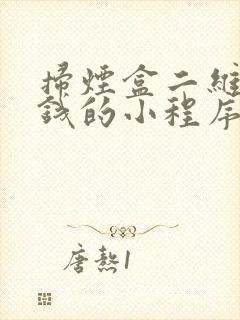 掃煙盒二維
錢的小程序
唐熬1